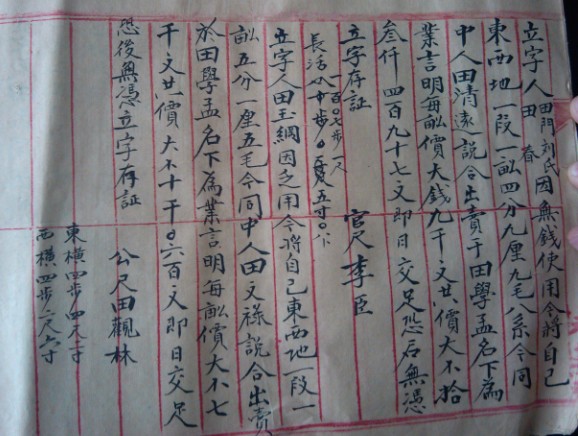 立字人田門刘氏田春因無錢使用今將自己
東西地一段一畝四分九厘九毛八系今同
中人田清遠說合出賣于田學孟名下為
業言明每畝價大錢九千文共價大不拾
叁仟四百九十七文即日交足恐后無憑
立字存証 官尺李臣
長活
立字人田玉綱因乏用今將自己東西地一段一
畝五分一厘五毛今同中人田文祿說合出賣
於田學孟名下為業言明每畝價大不七
千文共價大不十千〇六百文即日交足
恐後無憑立字存証 公尺田觀林
東橫四步四尺二寸
西橫四步二尺六寸